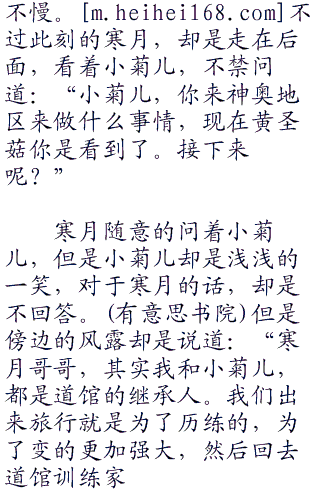 不慢。[m.heihei168.com]不
过此刻的寒月，却是走在后
面，看着小菊儿，不禁问
道：“小菊儿，你来神奥地
区来做什么事情，现在黄圣
菇你是看到了。接下来
呢？”
寒月随意的问着小菊
儿，但是小菊儿却是浅浅的
一笑，对于寒月的话，却是
不回答。(有意思书院)但是
傍边的风露却是说道：“寒
月哥哥，其实我和小菊儿，
都是道馆的继承人。我们出
来旅行就是为了历练的，为
了变的更加强大，然后回去
道馆训练家